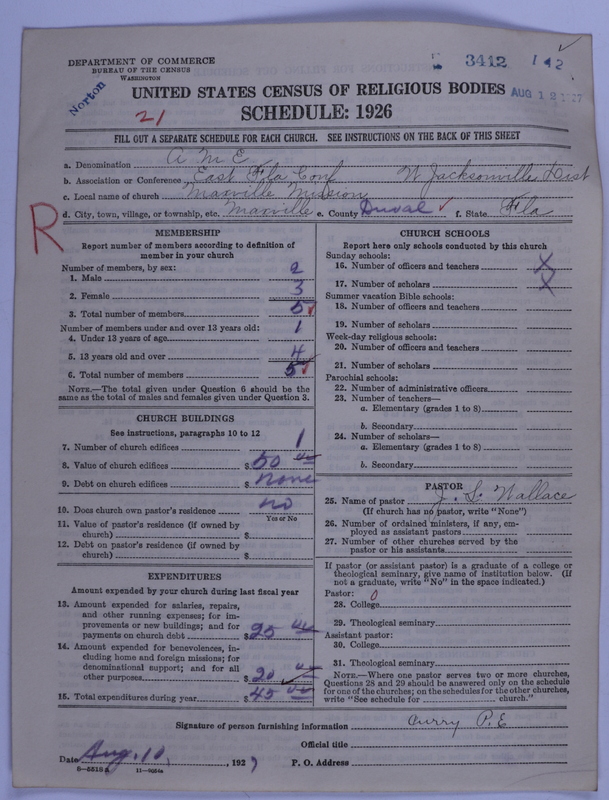 DEPARTMENT OF COMMERCE
BUREAU OF THE CENSUS
WASHINGTON
Norton
3412 1 42
AUG 12 1927
UNITED STATES CENSUS OF RELIGIOUS BODIES
21
SCHEDULE: 1926
FILL OUT A SEPARATE SCHEDULE FOR EACH CHURCH. SEE INSTRUCTIONS ON THE BACK OF THIS SHEET
a. Denomination A M E
b. Association or Conference East Fla Conf W Jacksonville Dist
c. Local name of church Maxville Mission
d. City, town, village, or township, etc. Maxville e. County Duval f. State Fla
R
MEMBERSHIP
Report number of members according to definition of
member in your church
Number of members, by sex:
1. Male 2
2. Female 3
3. Total number of members 5
Number of members under and over 13 years old:
4. Under 13 years of age 1
5. 13 years old and over 4
6. Total number of members 5
NOTE.—The total given under Question 6 should be
same as the total of males and females given under Question 3.
CHURCH BUILDINGS
See instructions, paragraphs 10 to 12
7. Number of church edifices 1
8. Value of church edifices $50 00
9. Debt on church edifices $none
10. Does church own pastor's residence no
Yes or No
11. Value of pastor's residence (if owned by
church) $
12. Debt on pastor's residence (if owned by
church) $
EXPENDITURES
Amount expended by your church during last fiscal year
13. Amount expended for salaries, repairs,
and other running expenses; for im-
provements or new buildings; and for
payments on church debt $25 00
14. Amount expended for benevolences, in-
cluding home and foreign missions; for
denominational support; and for all
other purposes $20 00
15. Total expenditures during year $45 00
CHURCH SCHOOLS
Report here only schools conducted by this church
Sunday schools:
16. Number of officers and teachers X
17. Number of scholars X
Summer vacation Bible schools:
18. Number of officers and teachers
19. Number of scholars
Week-day religious schools:
20. Number of officers and teachers
21. Number of scholars
Parochial schools:
22. Number of administrative officers
23. Number of teachers—
a. Elementary (grades 1 to 8)
b. Secondary
24. Number of scholars—
a. Elementary (grades 1 to 8)
b. Secondary
PASTOR
25. Name of pastor J. S. Wallace
(If church has no pastor, write "None")
26. Number of ordained ministers, if any, em-
ployed as assistant pastors
27. Number of other churches served by the
pastor or his assistants
If pastor (or assistant pastor) is a graduate of a college or
theological seminary, give name of institution below. (If
not a graduate, write "No" in the space indicated.)
Pastor: 0
28. College
29. Theological seminary
Assistant pastor:
30. College
31. Theological seminary
NOTE.—Where one pastor serves two or more churches,
Questions 28 and 29 should be answered only on the schedule
for one of the churches; on the schedules for the other churches,
write "See schedule for church."
Signature of person furnishing information Curry P.E
Official title
Date Aug. 10, 1927 P. O. Address
8-5518a 11-9024a